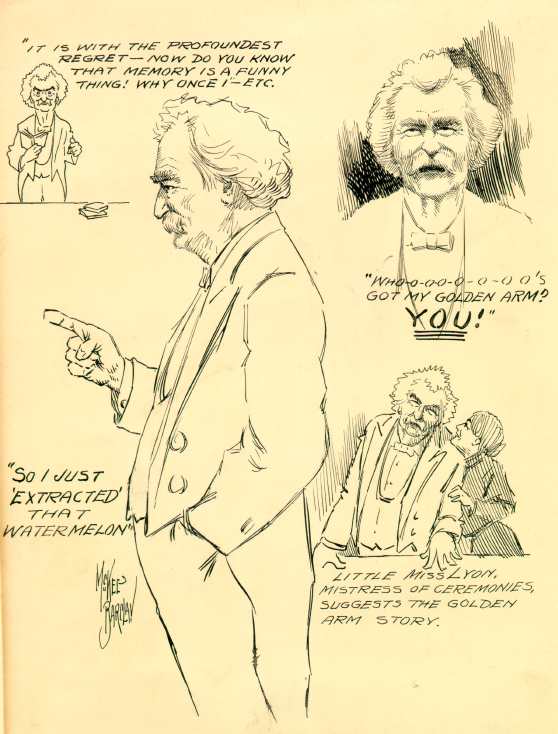 "IT IS WITH THE PROFOUNDEST
REGRET — NOW DO YOU KNOW
THAT MEMORY IS A FUNNY
THING! WHY ONCE I — ETC.
"WHO-O-OO-O-O-O O'S
GOT MY GOLDEN ARM?
YOU!"
"SO I JUST
'EXTRACTED'
THAT
WATERMELON"
McKEE
BARCLAY
LITTLE MISS LYON,
MISTRESS OF CEREMONIES,
SUGGESTS THE GOLDEN
ARM STORY.